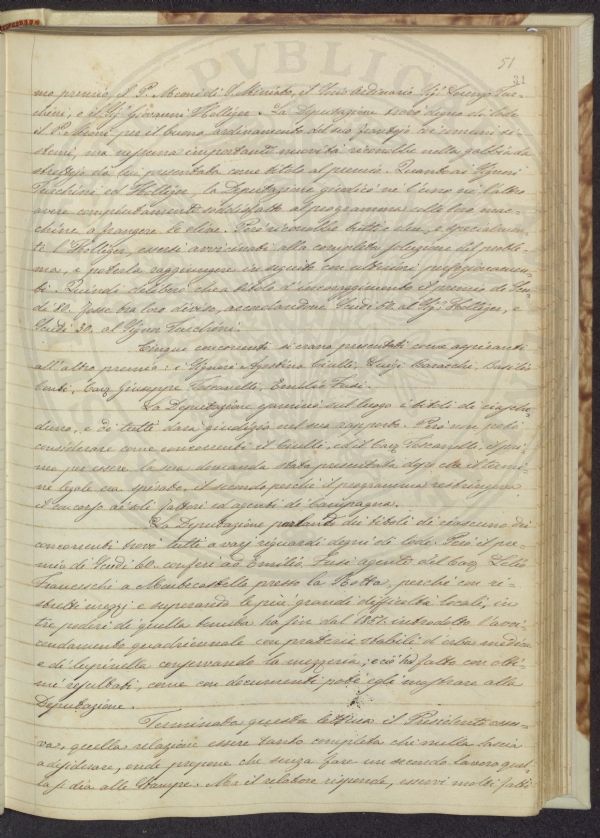 51
31
mo premio, il P. Meoni di S. Miniato, il Socio ordinario Sig. Lorenzo Tur-
chini, e il Sig. Giovanni Holleger. La Deputazione trovò degno di lode
il P. Meoni per il buono ordinamento del suo fra i comuni si-
stemi, ma nessuna importante novità riconobbe nella gabbia da
strettojo da lui presentata come titolo al premio. Quanto ai Signori
Turchini ed Holleger, la Deputazione giudicò nè l'uno nè l'altro
avere completamente soddisfatto al programma colle loro mac-
chine a frangere le olive. Però riconobbe tutti e due, e specialmen-
te l'Holleger, essersi avvicinati alla completa soluzione del proble-
ma, e poterla raggiungere in seguito con ulteriori perfezionamen-
ti. Quindi deliberò che a titolo d'incoraggimento il premio di Scu-
di 80. fosse tra loro diviso, accordandone Scudi 50. al Sig. Holleger, e
Scudi 30. al Signor Turchini.
Cinque concorrenti si erano presentati come aspiranti
all'altro premio: i Signori Agostino Ciulli, Luigi Baracchi, Basilio
Conti, Cav. Giuseppe Toscanelli, Emilio Fusi.
La Deputazione esaminò sul luogo i titoli di ciasche-
duno, e di tutti dava giudizio nel suo rapporto. Però non potè
considerare come concorrenti il Ciulli, ed il Cav. Toscanelli, il pri-
mo per essere la sua domanda stata presentata dopo che il termi-
ne legale era spirato, il secondo perchè il programma restringeva
il concorso ai soli fattori ed agenti di Campagna.
La Deputazione parlando dei titoli di ciascuno dei
concorrenti trovò tutti a varj riguardi degni di lode. Però il pre-
mio di Scudi 60. conferì ad Emilio Fusi agente del Cav. Lelio
Franceschi a Montecastello presso la Rotta, perchè con ri-
stretti mezzi e superando le più grandi difficoltà locali, in
tre poderi di quella tenuta ha fin dal 1857. introdotto l'avvi-
cendamento quadriennale con praterie stabili d'erba medica
e di lupinella conservando la mezzeria; e ciò ha fatto con otti-
mi resultati, come con documenti potè egli mostrare alla
Deputazione.
Terminata questa lettura il Presidente osser-
va, quella relazione essere tanto completa che nulla lascia
a desiderare, onde propone che senza fare un secondo lavoro que-
sta si dia alle Stampe. Ma il relatore risponde, esservi molti fatti